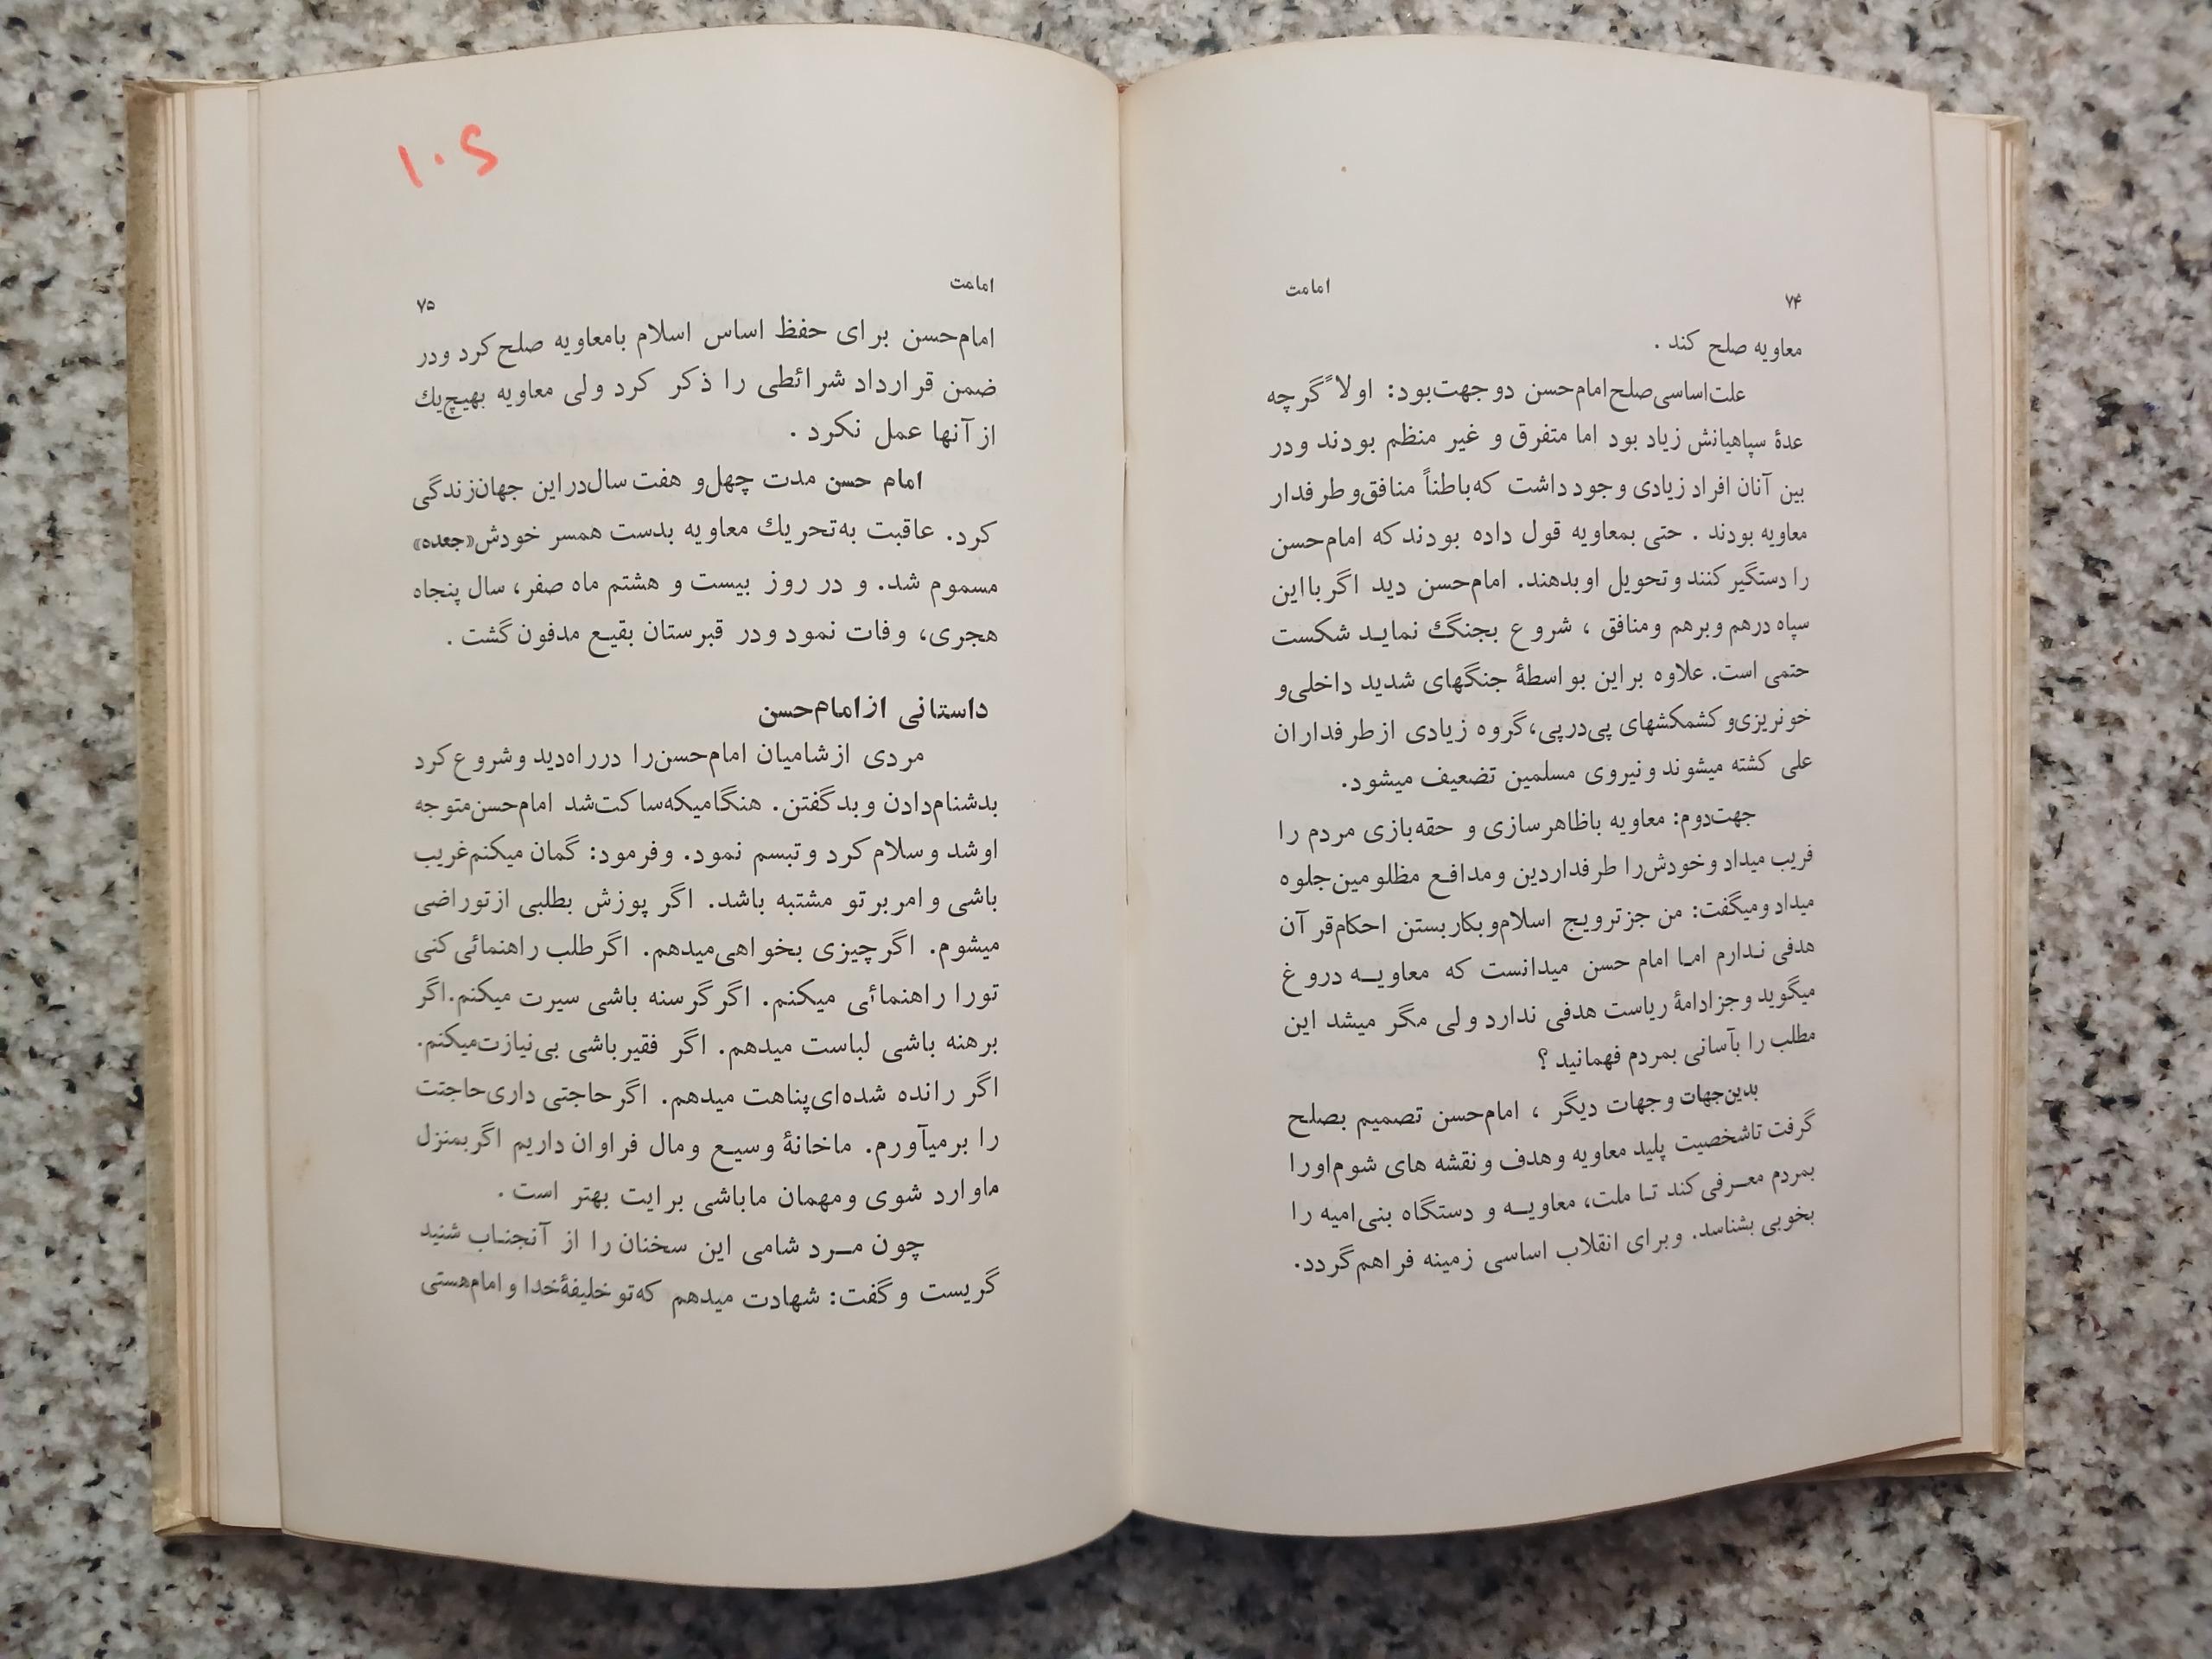 ۷۴
امامت
معاویه صلح کند .
علت‌اساسی‌صلح‌امام‌حسن دوجهت‌بود: اولاً گرچه
عدهٔ سپاهیانش زیاد بود اما متفرق و غیر منظم بودند ودر
بین آنان افراد زیادی وجود داشت که‌باطناً منافق‌وطرفدار
معاویه بودند . حتی بمعاویه قول داده بودندکه امام‌حسن
را دستگیرکنند وتحویل اوبدهند. امام‌حسن دید اگربااین
سپاه درهم وبرهم ومنافق ، شروع بجنگ نماید شکست
حتمی است. علاوه براین بواسطهٔ جنگهای شدید داخلی‌و
خونریزی‌وکشمکشهای پی‌درپی،گروه زیادی ازطرفداران
علی کشته میشوند ونیروی مسلمین تضعیف میشود.
جهت‌دوم: معاویه باظاهرسازی و حقه‌بازی مردم را
فریب میداد وخودش‌را طرفداردین ومدافع مظلومین‌جلوه
میداد ومیگفت: من جزترویج اسلام‌وبکاربستن احکام‌قرآن
هدفی ندارم اما امام حسن میدانست که معاویه دروغ
میگوید وجزادامهٔ ریاست هدفی ندارد ولی مگر میشد این
مطلب را بآسانی بمردم فهمانید ؟
بدین‌جهات وجهات دیگر ، امام‌حسن تصمیم بصلح
گرفت تاشخصیت پلید معاویه وهدف ونقشه های شوم‌اورا
بمردم معرفی‌کند تا ملت، معاویه و دستگاه بنی‌امیه را
بخوبی بشناسد. وبرای انقلاب اساسی زمینه فراهم‌گردد.
۱۰۶
امامت
۷۵
امام‌حسن برای حفظ اساس اسلام بامعاویه صلح‌کرد ودر
ضمن قرارداد شرائطی را ذکر کرد ولی معاویه بهیچ‌یك
ازآنها عمل نکرد .
امام حسن مدت چهل‌و هفت سال‌دراین جهان‌زندگی
کرد. عاقبت به‌تحریك معاویه بدست همسر خودش«جعده»
مسموم شد. و در روز بیست و هشتم ماه صفر، سال پنجاه
هجری، وفات نمود ودر قبرستان بقیع مدفون گشت .
داستانی ازامام‌حسن
مردی ازشامیان امام‌حسن‌را درراه‌دید وشروع‌کرد
بدشنام‌دادن وبدگفتن. هنگامیکه‌ساکت‌شد امام‌حسن‌متوجه
اوشد وسلام‌کرد وتبسم نمود. وفرمود: گمان میکنم‌غریب
باشی وامربرتو مشتبه باشد. اگر پوزش بطلبی ازتوراضی
میشوم. اگرچیزی بخواهی‌میدهم. اگرطلب راهنمائی‌کنی
تورا راهنمائی میکنم. اگرگرسنه باشی سیرت میکنم.اگر
برهنه باشی لباست میدهم. اگر فقیرباشی بی‌نیازت‌میکنم.
اگر رانده شده‌ای‌پناهت میدهم. اگرحاجتی داری‌حاجتت
را برمیآورم. ماخانهٔ وسیع ومال فراوان داریم اگربمنزل
ماوارد شوی ومهمان ماباشی برایت بهتر است .
چون مرد شامی این سخنان را از آنجناب شنید
گریست وگفت: شهادت میدهم که‌تو خلیفهٔ‌خدا وامام‌هستی